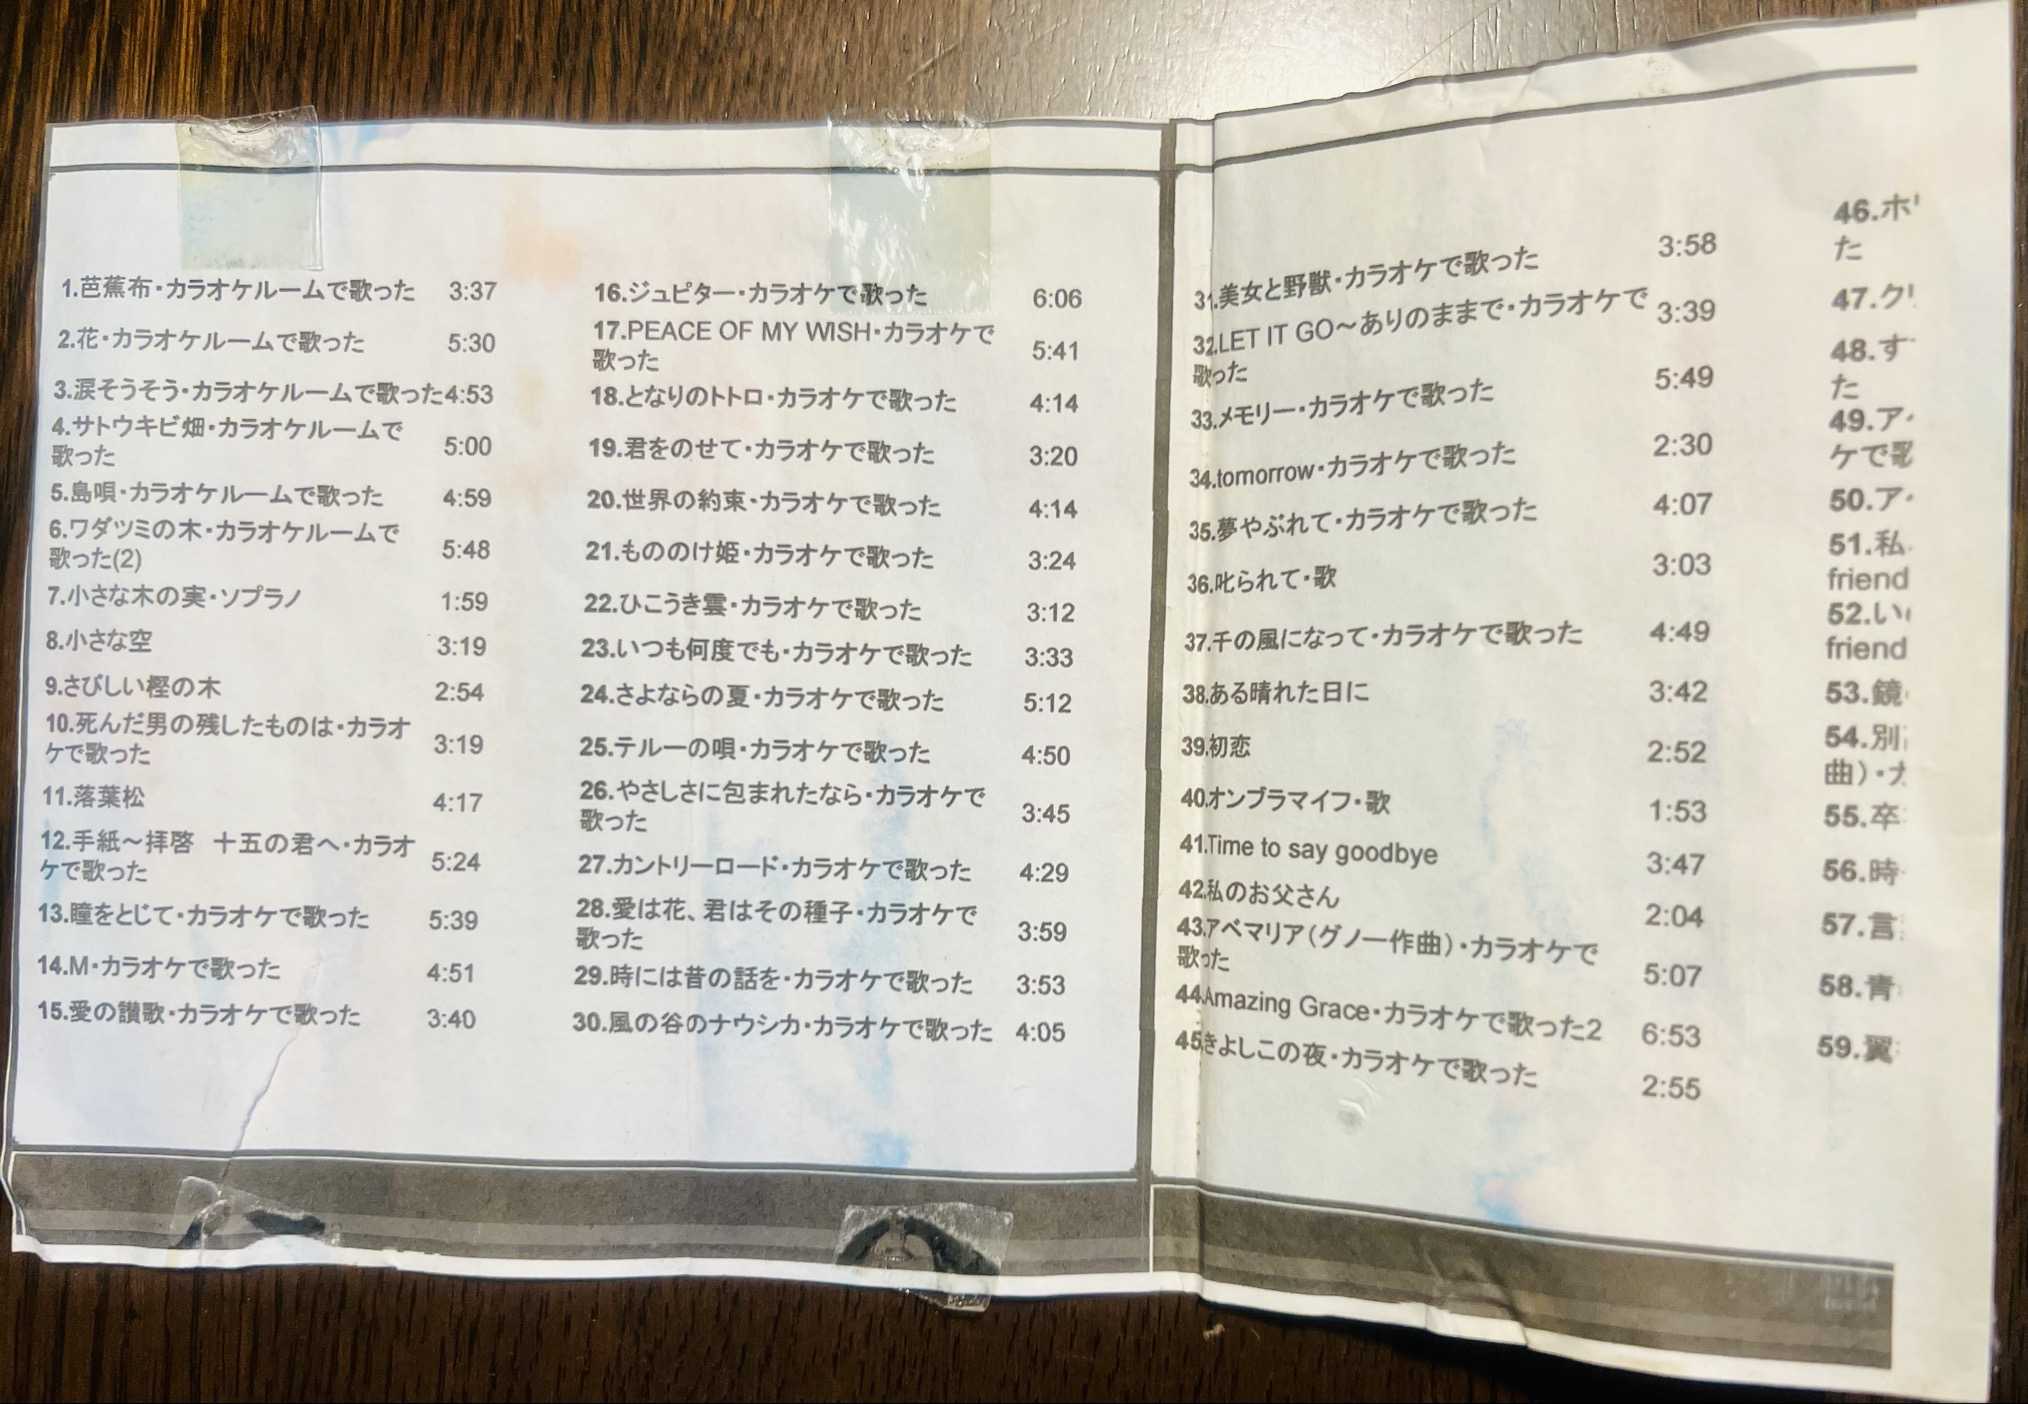 1.芭蕉布・カラオケルームで歌った 3:37
2.花・カラオケルームで歌った 5:30
3.涙そうそう・カラオケルームで歌った 4:53
4.サトウキビ畑・カラオケルームで
歌った 5:00
5.島唄・カラオケルームで歌った 4:59
6.ワダツミの木・カラオケルームで
歌った(2) 5:48
7.小さな木の実・ソプラノ 1:59
8.小さな空 3:19
9.さびしい樫の木 2:54
10.死んだ男の残したものは・カラオ
ケで歌った 3:19
11.落葉松 4:17
12.手紙～拝啓　十五の君へ・カラオ
ケで歌った 5:24
13.瞳をとじて・カラオケで歌った 5:39
14.M・カラオケで歌った 4:51
15.愛の讃歌・カラオケで歌った 3:40
16.ジュピター・カラオケで歌った 6:06
17.PEACE OF MY WISH・カラオケで
歌った 5:41
18.となりのトトロ・カラオケで歌った 4:14
19.君をのせて・カラオケで歌った 3:20
20.世界の約束・カラオケで歌った 4:14
21.もののけ姫・カラオケで歌った 3:24
22.ひこうき雲・カラオケで歌った 3:12
23.いつも何度でも・カラオケで歌った 3:33
24.さよならの夏・カラオケで歌った 5:12
25.テルーの唄・カラオケで歌った 4:50
26.やさしさに包まれたなら・カラオケで
歌った 3:45
27.カントリーロード・カラオケで歌った 4:29
28.愛は花、君はその種子・カラオケで
歌った 3:59
29.時には昔の話を・カラオケで歌った 3:53
30.風の谷のナウシカ・カラオケで歌った 4:05
31.美女と野獣・カラオケで歌った 3:58
32.LET IT GO～ありのままで・カラオケで
歌った 3:39
33.メモリー・カラオケで歌った 5:49
34.tomorrow・カラオケで歌った 2:30
35.夢やぶれて・カラオケで歌った 4:07
36.叱られて・歌 3:03
37.千の風になって・カラオケで歌った 4:49
38.ある晴れた日に 3:42
39.初恋 2:52
40.オンブラマイフ・歌 1:53
41.Time to say goodbye 3:47
42.私のお父さん 2:04
43.アベマリア（グノー作曲）・カラオケで
歌った 5:07
44.Amazing Grace・カラオケで歌った2 6:53
45.きよしこの夜・カラオケで歌った 2:55
46.ホ
た
47.ク
48.す
た
49.ア
ケで歌
50.ア
51.私
friend
52.い
friend
53.鏡
54.別
曲）・カ
55.卒
56.時
57.言
58.青
59.翼